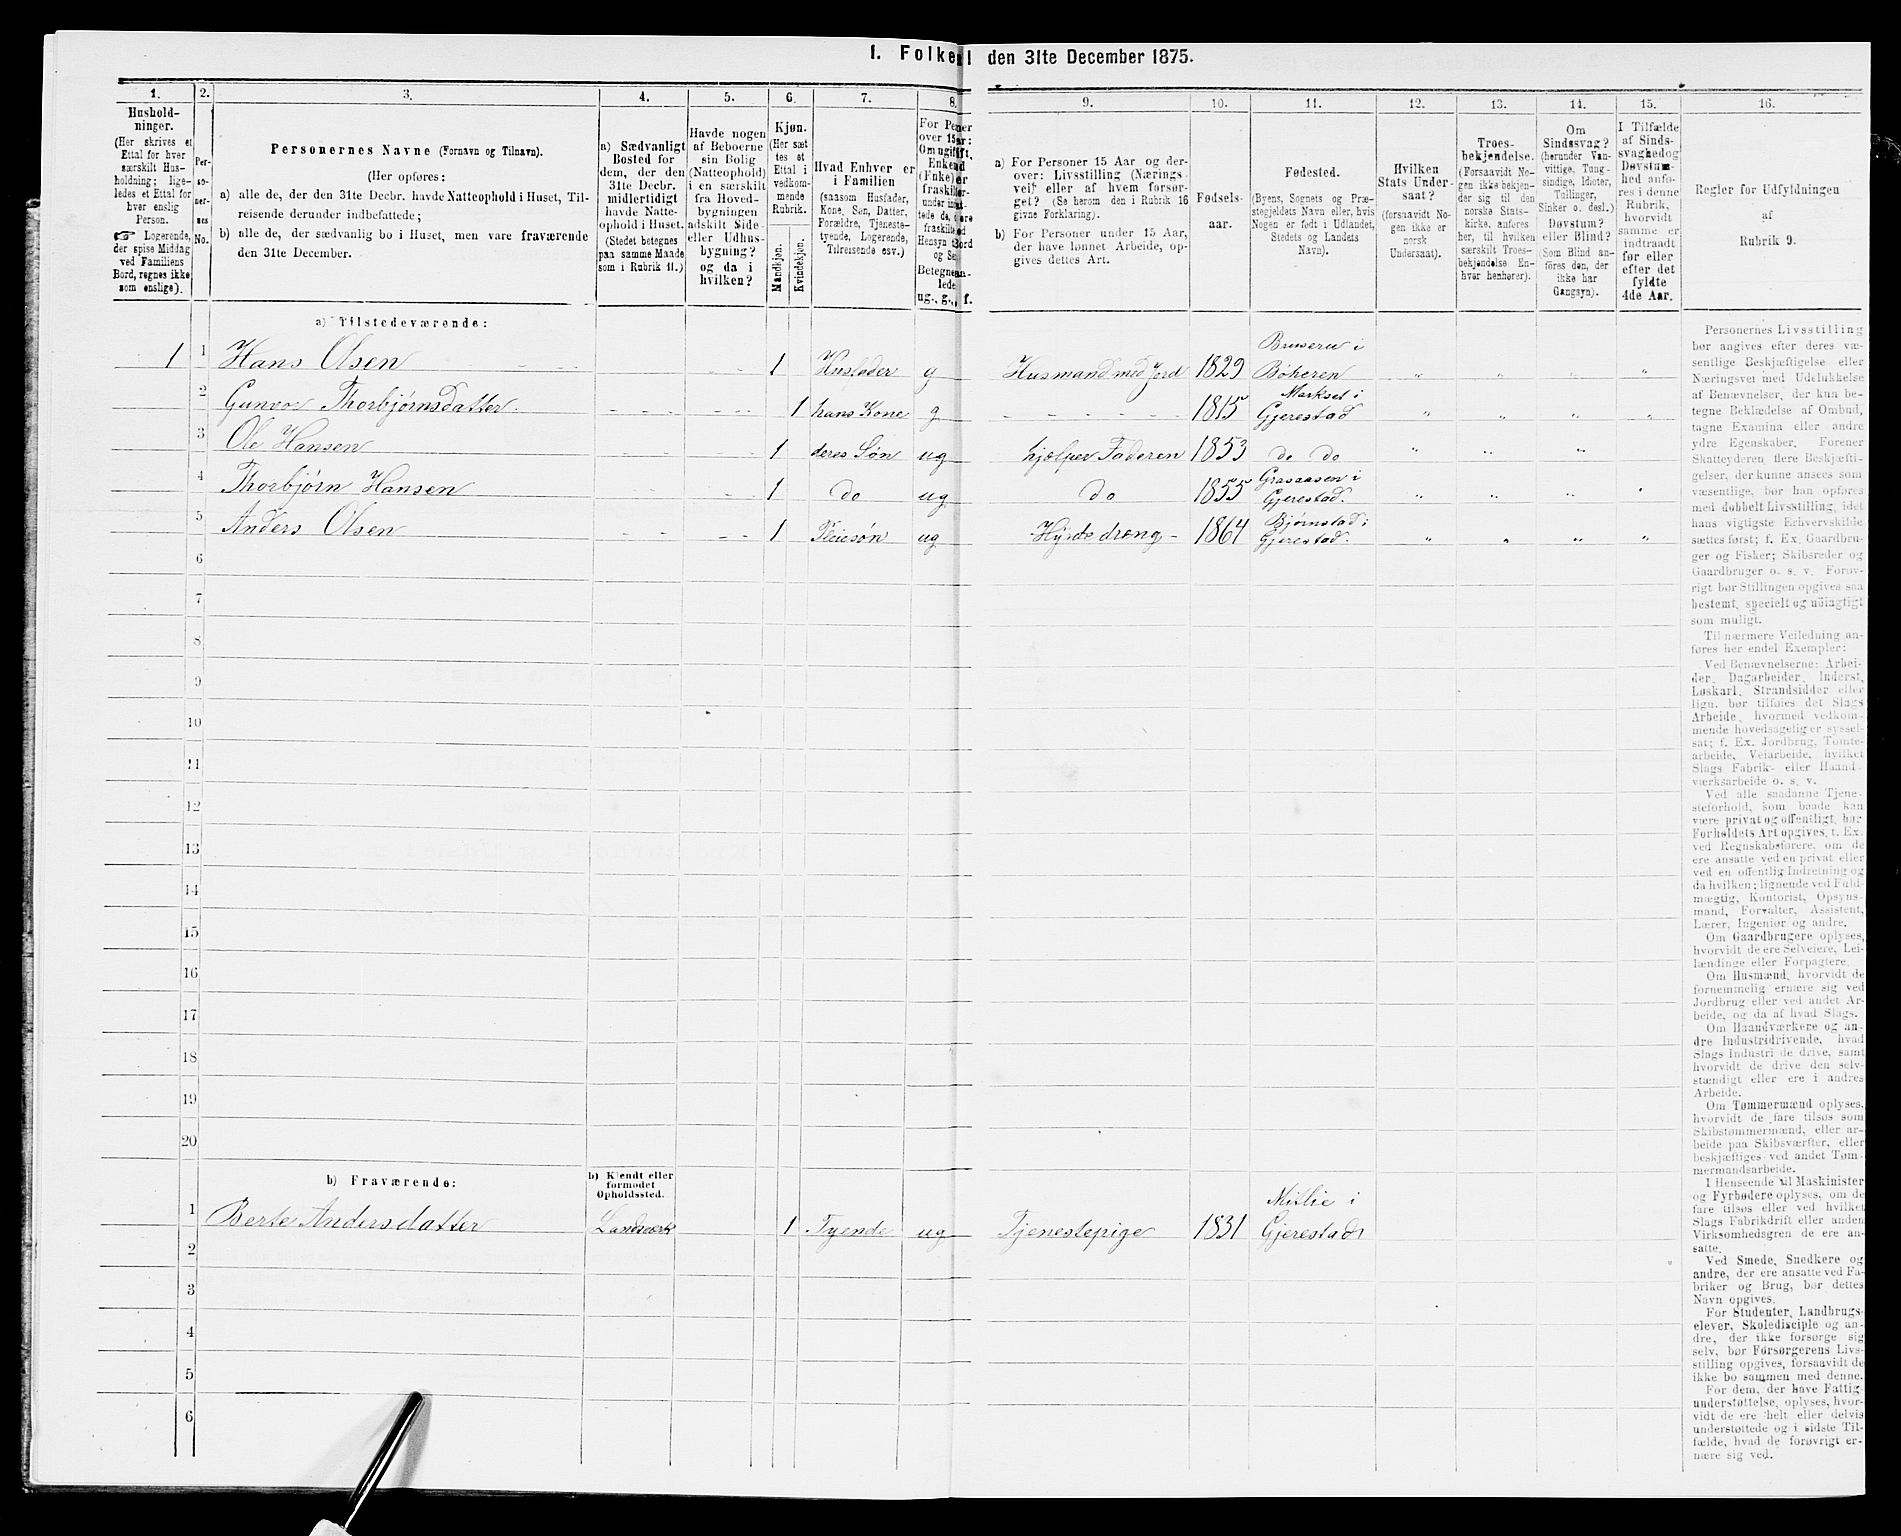 1. Folke l den 31te December 1875.
1. 2. 3. 4. 5. 6. 7. 8. 9. 10. 11. 12. 13. 14. 15. 16.
Hushold-
ninger.
(Her skrives et
Ettal for hver
særskilt Hus-
holdning; lige-
ledes et Ettal for
hver enslig
Person.
☞ Logerende,
der spise Middag
ved Familiens
Bord, regnes ikke
som enslige).
Per-
so-
ner-
nes
No.
Personernes Navne (Fornavn og Tilnavn).
(Her opføres:
a) alle de, der den 31te Decbr. havde Natteophold i Huset, Til-
reisende derunder indbefattede;
b) alle de, der sædvanlig bo i Huset, men vare fraværende
den 31te December.
a) Sædvanligt
Bosted for
dem, der den
31te Decbr.
midlertidigt
havde Natte-
ophold i Huset.
(Stedet betegnes
paa samme Maade
som i Rubrik 11.)
Havde nogen
af Beboerne
sin Bolig
(Natteophold)
i en særskilt
fra Hoved-
bygningen
adskilt Side-
eller Udhus-
bygning?
og da i
hvilken?
Kjøn.
(Her sæt
tes et
Ettal i
vedkom-
mende
Rubrik.
Mandkjøn.
Kvindekjøn.
Hvad Enhver er
i Familien
(saasom Husfader,
Kone, Søn, Datter,
Forældre, Tjeneste-
tyende, Logerende,
Tilreisende osv.).
over 15
Enke
(Enke)
Betegne
lede
ug., g., f.
a) For Personer 15 Aar og der-
over: Livsstilling (Nærings-
vei) eller af hvem forsør-
get? (Se herom den i Rubrik 16
givne Forklaring).
b) For Personer under 15 Aar,
der have lønnet Arbeide, op-
gives dettes Art.
Fødsels-
aar.
Fødested.
(Byens, Sognets og Præ-
stegjeldets Navn eller, hvis
Nogen er født i Udlandet,
Stedets og Landets
Navn).
Hvilken
Stats Under-
saat?
(forsaavidt No-
gen ikke er
norsk
Undersaat).
Troes-
bekjendelse.
(Forsaavidt No-
gen ikke bekjen-
der sig til den
norske Stats-
kirke, anføres
her, til hvilken
særskilt Troes-
bekjendelse En-
hver henhører).
Om
Sindssvag?
(herunder Van-
vittige, Tung-
sindige, Idioter,
Tullinger,
Sinker o. desl.)
Døvstum?
eller Blind?
(Som Blind an-
føres den, der
ikke har
Gangsyn).
I Tilfælde
af Sinds-
svaghed og
Døvstum-
hed anfø-
res i denne
Rubrik,
hvorvidt
samme er
indtraadt
før eller
efter det
fyldte
4de Aar.
Regler for Udfyldningen
af
Rubrik 9.
a) Tilstedeværende:
1 1 Hans Olsen 1 Husfader g Husmand med Jord 1829 i Bøheren " " " "
2 Gunvor Thorbjørnsdatter 1 hans Kone g 1815 Markset i Gjerestad " " " "
3 Ole Hansen 1 deres Søn ug hjælper Faderen 1853 do do " " "
4 Thorbjørn Hansen 1 do ug do 1855 Grasaasen i Gjerestad. " " " "
5 Anders Olsen 1 Pleiesøn ug Hyrdedreng 1864 Bjørnstad i Gjerestad. " " " "
6
7
8
9
10
11
12
13
14
15
16
17
18
19
20
b) Fraværende:
b) Kjendt eller
formodet
Opholdssted.
1 Berte Andersdatter Landsværk 1 Tyende ug Tjenestepige 1831 i Gjerestad
2
3
4
5
6
Personernes Livsstilling
bør angives efter deres væ-
sentlige Beskjæftigelse eller
Næringsvei med Udelukkelse
af Benævnelser, der kun be-
tegne Beklædelse af Ombud,
tagne Examina eller andre
ydre Egenskaber. Forener
Skatteyderen flere Beskjæfti-
gelser, der kunne ansees som
væsentlige, bør han opføres
med dobbelt Livsstilling, idet
hans vigtigste Erhvervskilde
sættes først; f. Ex. Gaardbru-
ger og Fisker; Skibsreder og
Gaardbruger o. s. v. Forøv-
rigt bør Stillingen opgives saa
bestemt, specielt og nøiagtigt
som muligt.
Til nærmere Veiledning an-
føres her endel Exempler:
Ved Benævnelserne: Arbei-
der, Dagarbeider, Inderst,
Løskarl, Strandsidder eller
lign. bør tilføies det Slags
Arbeide, hvormed vedkom-
mende hovedsagelig er syssel-
sat; f. Ex. Jordbrug, Tomte-
arbeide, Veiarbeide, hvilket
Slags Fabrik- eller Haand-
værksarbeide o. s. v.
Ved alle saadanne Tjene-
steforhold, som baade kan
være privat og offentligt, bør
Forholdets Art opgives, f. Ex.
ved Regnskabsførere, om de
ere ansatte ved en privat eller
ved en offentlig Indretning og
da hvilken; lignende ved Fuld-
mægtig, Kontorist, Opsyns-
mand, Forvalter, Assistent,
Lærer, Ingeniør og andre.
Om Gaardbrugere oplyses,
hvorvidt de ere Selveiere, Lei-
lændinge eller Forpagtere.
Om Husmænd, hvorvidt de
fornemmelig ernære sig ved
Jordbrug eller ved andet Ar-
beide, og da af hvad Slags.
Om Haandværkere og an-
dre Industridrivende, hvad
Slags Industri de drive, samt
hvorvidt de drive den selv-
stændigt eller ere i andres
Arbeide.
Om Tømmermænd oplyses,
hvorvidt de fare tilsøs som
Skibstømmermænd, eller ar-
beide paa Skibsværfter, eller
beskjæftiges ved andet Tøm-
mermandsarbeide.
I Henseende til Maskinister
og Fyrbødere oplyses, om de
fare tilsøs eller ved hvilket
Slags Fabrikdrift eller anden
Virksomhedsgren de ere an-
satte.
Ved Smede, Snedkere og
andre, der ere ansatte ved Fa-
briker og Brug, bør dettes
Navn opgives.
For Studenter, Landbrugs-
elever, Skoledisciple og an-
dre, der ikke forsørge sig
selv, bør Forsørgerens Livs-
stilling opgives, forsaavidt de
ikke bo sammen med denne.
For dem, der have Fattig-
understøttelse, oplyses, hvor-
vidt de ere helt eller delvis
understøttede og i sidste Til-
fælde, hvad de forøvrigt er-
nære sig ved.